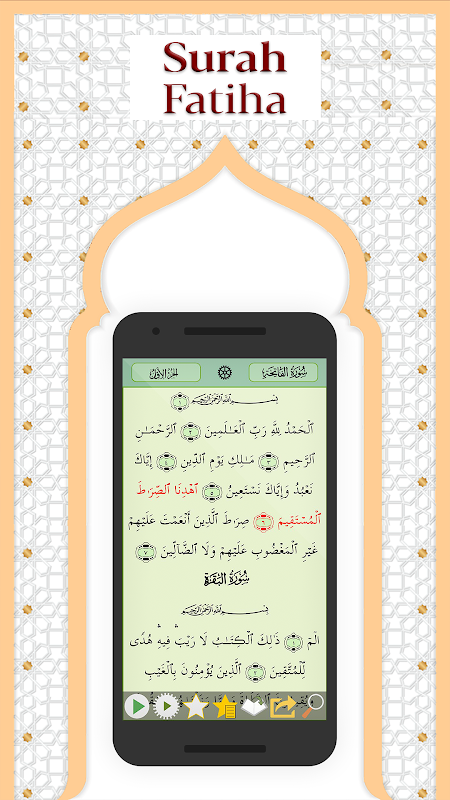 Surah
Fatiha
الجزء الاول سُورَةُ الفَاتِحَةِ
بِسْمِ اللَّهِ الرَّحْمَٰنِ الرَّحِيمِ ١
ٱلْحَمْدُ لِلَّهِ رَبِّ ٱلْعَـٰلَمِينَ ٢ ٱلرَّحْمَـٰنِ
ٱلرَّحِيمِ ٣ مَـٰلِكِ يَوْمِ ٱلدِّينِ ٤ إِيَّاكَ
نَعْبُدُ وَإِيَّاكَ نَسْتَعِينُ ٥ ٱهْدِنَا ٱلصِّرَٰطَ
ٱلْمُسْتَقِيمَ ٦ صِرَٰطَ ٱلَّذِينَ أَنْعَمْتَ عَلَيْهِمْ
غَيْرِ ٱلْمَغْضُوبِ عَلَيْهِمْ وَلَا ٱلضَّآلِّينَ ٧
سُورَةُ البَقَرَةِ
بِسْمِ اللَّهِ الرَّحْمَٰنِ الرَّحِيمِ
الٓمٓ ١ ذَٰلِكَ ٱلْكِتَـٰبُ لَا رَيْبَ ۛ فِيهِ ۛ هُدًى
لِّلْمُتَّقِينَ ٢ ٱلَّذِينَ يُؤْمِنُونَ بِٱلْغَيْبِ